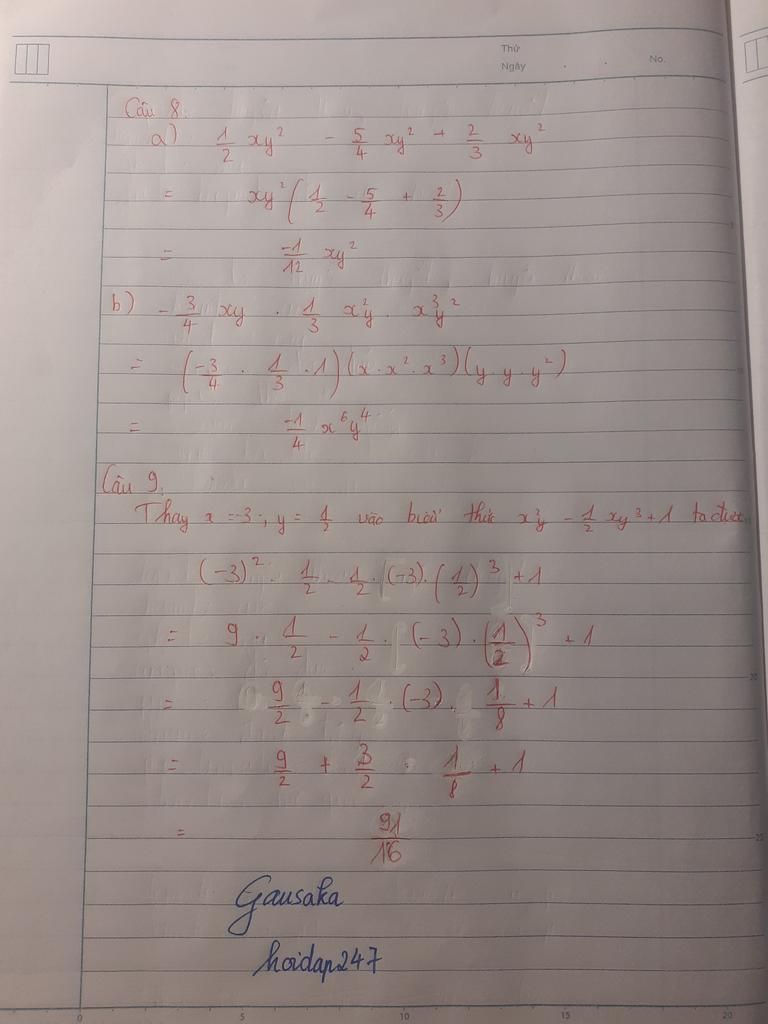 Thứ
Ngày . . No.
Câu 8.
a) 1/2 xy² - 5/4 xy² + 2/3 xy²
= xy² ( 1/2 - 5/4 + 2/3 )
= -1/12 xy²
b) - 3/4 xy . 1/3 x²y . x³y²
= ( -3/4 . 1/3 . 1 ) (x . x² . x³) (y . y . y²)
= -1/4 x⁶y⁴
Câu 9.
Thay x = -3 ; y = 1/2 vào biểu thức x²y - 1/2 xy³ + 1 ta được
(-3)² . 1/2 - 1/2 . (-3) . (1/2)³ + 1
= 9 . 1/2 - 1/2 . (-3) . (1/2)³ + 1
= 9/2 - 1/2 . (-3) . 1/8 + 1
= 9/2 + 3/2 . 1/8 + 1
= 91/16
Gausaka
hoidap247
0 5 10 15 20
20
25